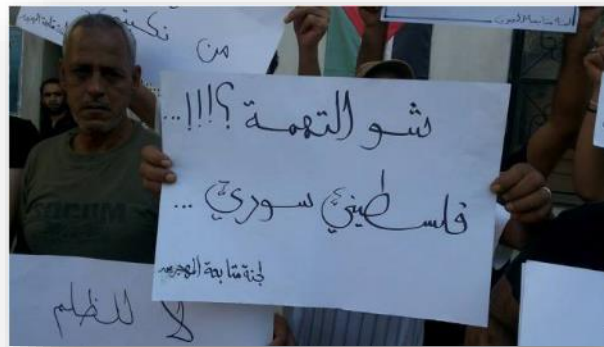 من
شو التهمة ؟!!!...
فلسطيني سوري ...
لجنة متابعة المهجرين
لا للظلم